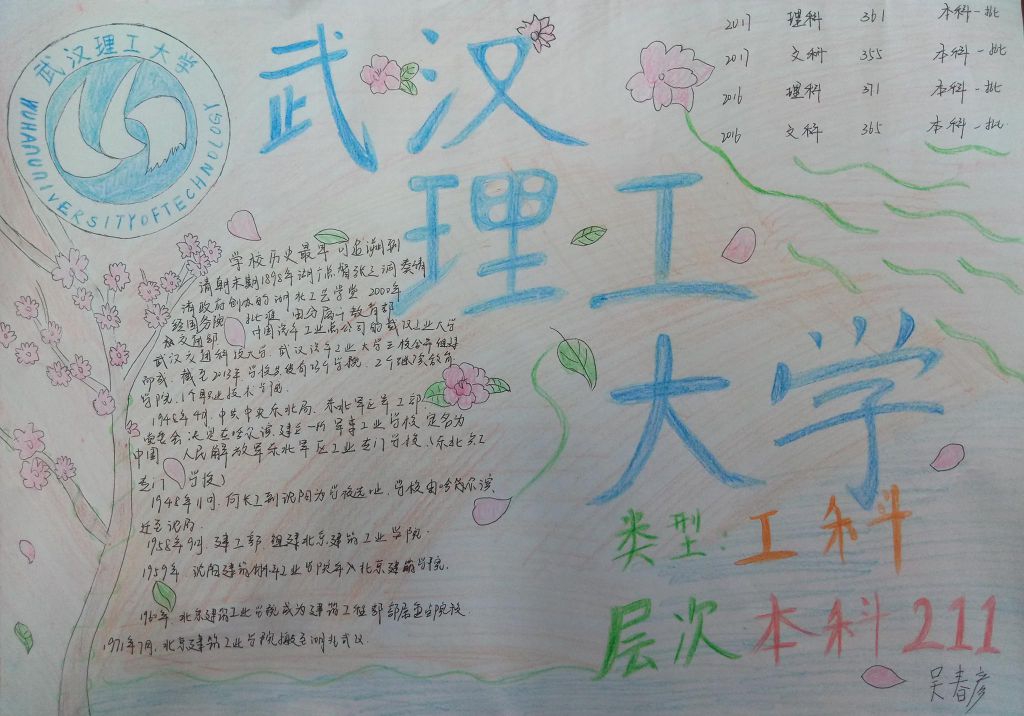 武汉理工大学
WUHAN UNIVERSITY OF TECHNOLOGY
武汉
理工
大学
2017 理科 361 本科一批
2017 文科 355 本科一批
2016 理科 371 本科一批
2016 文科 365 本科一批
学校历史最早可追溯到
清朝末期1898年湖广总督张之洞奏请
清政府创办的湖北工艺学堂 2000年
经国务院 批准 由分属于教育部
交通部 中国汽车工业总公司的武汉工业大学
武汉交通科技大学、武汉汽车工业大学三校合并组建
而成. 截至2013年学校共设有23个学院、2个继续教育
学院、1个职业技术学院.
1948年9月, 中共中央东北局、东北军区军工部
委员会决定在哈尔滨建立一所军事工业学校 定名为
中国 人民解放军东北军区工业专门学校、(东北兵工
专门 学校)
1948年11月, 何长工到沈阳为学校选址, 学校由哈尔滨
迁至沈阳.
1958年9月, 建工部 组建北京建筑工业学院.
1959年, 沈阳建筑材料工业学院并入北京建筑学院.
1960年, 北京建筑工业学院成为建筑工程部部属重点院校.
1971年7月, 北京建筑工业学院搬至湖北武汉.
类型: 工科
层次 本科211
吴春彦